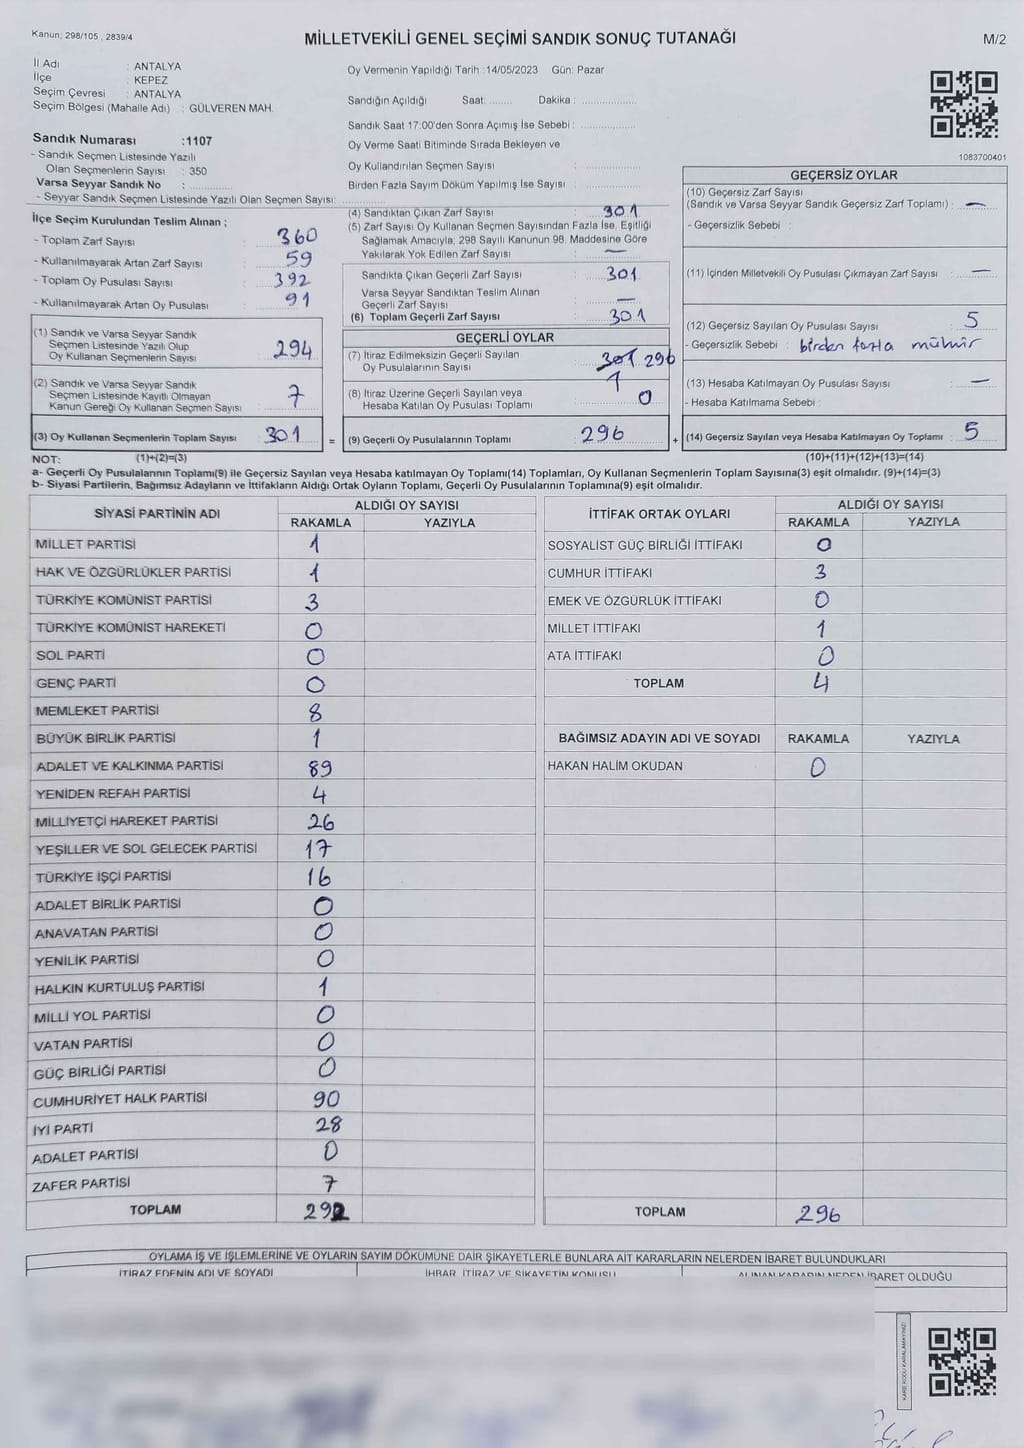 Kanun; 298/105 , 2839/4
MİLLETVEKİLİ GENEL SEÇİMİ SANDIK SONUÇ TUTANAĞI
M/2
İl Adı : ANTALYA
İlçe : KEPEZ
Seçim Çevresi : ANTALYA
Seçim Bölgesi (Mahalle Adı) : GÜLVEREN MAH.
Sandık Numarası :1107
- Sandık Seçmen Listesinde Yazılı
Olan Seçmenlerin Sayısı : 350
Varsa Seyyar Sandık No :
- Seyyar Sandık Seçmen Listesinde Yazılı Olan Seçmen Sayısı:
İlçe Seçim Kurulundan Teslim Alınan ;
- Toplam Zarf Sayısı 360
- Kullanılmayarak Artan Zarf Sayısı 59
- Toplam Oy Pusulası Sayısı 392
- Kullanılmayarak Artan Oy Pusulası 91
(1) Sandık ve Varsa Seyyar Sandık
Seçmen Listesinde Yazılı Olup
Oy Kullanan Seçmenlerin Sayısı 294
(2) Sandık ve Varsa Seyyar Sandık
Seçmen Listesinde Kayıtlı Olmayan
Kanun Gereği Oy Kullanan Seçmen Sayısı 7
Oy Vermenin Yapıldığı Tarih :14/05/2023 Gün: Pazar
Sandığın Açıldığı Saat: ........ Dakika : ..................
Sandık Saat 17:00'den Sonra Açımış İse Sebebi : ..................
Oy Verme Saati Bitiminde Sırada Bekleyen ve
Oy Kullandırılan Seçmen Sayısı :
Birden Fazla Sayım Döküm Yapılmış İse Sayısı :
(4) Sandıktan Çıkan Zarf Sayısı 301
(5) Zarf Sayısı Oy Kullanan Seçmen Sayısından Fazla İse, Eşitliği
Sağlamak Amacıyla, 298 Sayılı Kanunun 98. Maddesine Göre
Yakılarak Yok Edilen Zarf Sayısı —
Sandıkta Çıkan Geçerli Zarf Sayısı 301
Varsa Seyyar Sandıktan Teslim Alınan
Geçerli Zarf Sayısı —
(6) Toplam Geçerli Zarf Sayısı 301
GEÇERLİ OYLAR
(7) İtiraz Edilmeksizin Geçerli Sayılan
Oy Pusulalarının Sayısı 301 296
(8) İtiraz Üzerine Geçerli Sayılan veya
Hesaba Katılan Oy Pusulası Toplamı 0
1083700401
GEÇERSİZ OYLAR
(10) Geçersiz Zarf Sayısı
(Sandık ve Varsa Seyyar Sandık Geçersiz Zarf Toplamı) : —
- Geçersizlik Sebebi :
(11) İçinden Milletvekili Oy Pusulası Çıkmayan Zarf Sayısı : —
(12) Geçersiz Sayılan Oy Pusulası Sayısı : 5
- Geçersizlik Sebebi : birden fazla mühür
(13) Hesaba Katılmayan Oy Pusulası Sayısı : —
- Hesaba Katılmama Sebebi :
(3) Oy Kullanan Seçmenlerin Toplam Sayısı 301 = (9) Geçerli Oy Pusulalarının Toplamı 296 + (14) Geçersiz Sayılan veya Hesaba Katılmayan Oy Toplamı : 5
NOT: (1)+(2)=(3) (10)+(11)+(12)+(13)=(14)
a- Geçerli Oy Pusulalarının Toplamı(9) ile Geçersiz Sayılan veya Hesaba katılmayan Oy Toplamı(14) Toplamları, Oy Kullanan Seçmenlerin Toplam Sayısına(3) eşit olmalıdır. (9)+(14)=(3)
b- Siyasi Partilerin, Bağımsız Adayların ve İttifakların Aldığı Ortak Oyların Toplamı, Geçerli Oy Pusulalarının Toplamına(9) eşit olmalıdır.
SİYASİ PARTİNİN ADI ALDIĞI OY SAYISI
RAKAMLA YAZIYLA
MİLLET PARTİSİ 1
HAK VE ÖZGÜRLÜKLER PARTİSİ 1
TÜRKİYE KOMÜNİST PARTİSİ 3
TÜRKİYE KOMÜNİST HAREKETİ 0
SOL PARTİ 0
GENÇ PARTİ 0
MEMLEKET PARTİSİ 8
BÜYÜK BİRLİK PARTİSİ 1
ADALET VE KALKINMA PARTİSİ 89
YENİDEN REFAH PARTİSİ 4
MİLLİYETÇİ HAREKET PARTİSİ 26
YEŞİLLER VE SOL GELECEK PARTİSİ 17
TÜRKİYE İŞÇİ PARTİSİ 16
ADALET BİRLİK PARTİSİ 0
ANAVATAN PARTİSİ 0
YENİLİK PARTİSİ 0
HALKIN KURTULUŞ PARTİSİ 1
MİLLİ YOL PARTİSİ 0
VATAN PARTİSİ 0
GÜÇ BİRLİĞİ PARTİSİ 0
CUMHURİYET HALK PARTİSİ 90
İYİ PARTİ 28
ADALET PARTİSİ 0
ZAFER PARTİSİ 7
TOPLAM 292
İTTİFAK ORTAK OYLARI ALDIĞI OY SAYISI
RAKAMLA YAZIYLA
SOSYALİST GÜÇ BİRLİĞİ İTTİFAKI 0
CUMHUR İTTİFAKI 3
EMEK VE ÖZGÜRLÜK İTTİFAKI 0
MİLLET İTTİFAKI 1
ATA İTTİFAKI 0
TOPLAM 4
BAĞIMSIZ ADAYIN ADI VE SOYADI RAKAMLA YAZIYLA
HAKAN HALİM OKUDAN 0
TOPLAM 296
OYLAMA İŞ VE İŞLEMLERİNE VE OYLARIN SAYIM DÖKÜMÜNE DAİR ŞİKAYETLERLE BUNLARA AİT KARARLARIN NELERDEN İBARET BULUNDUKLARI
İTİRAZ EDENİN ADI VE SOYADI İHBAR, İTİRAZ VE ŞİKAYETİN KONUSU ALINAN KARARIN NEDEN İBARET OLDUĞU
KARE KODU KARALAMAYINIZ!